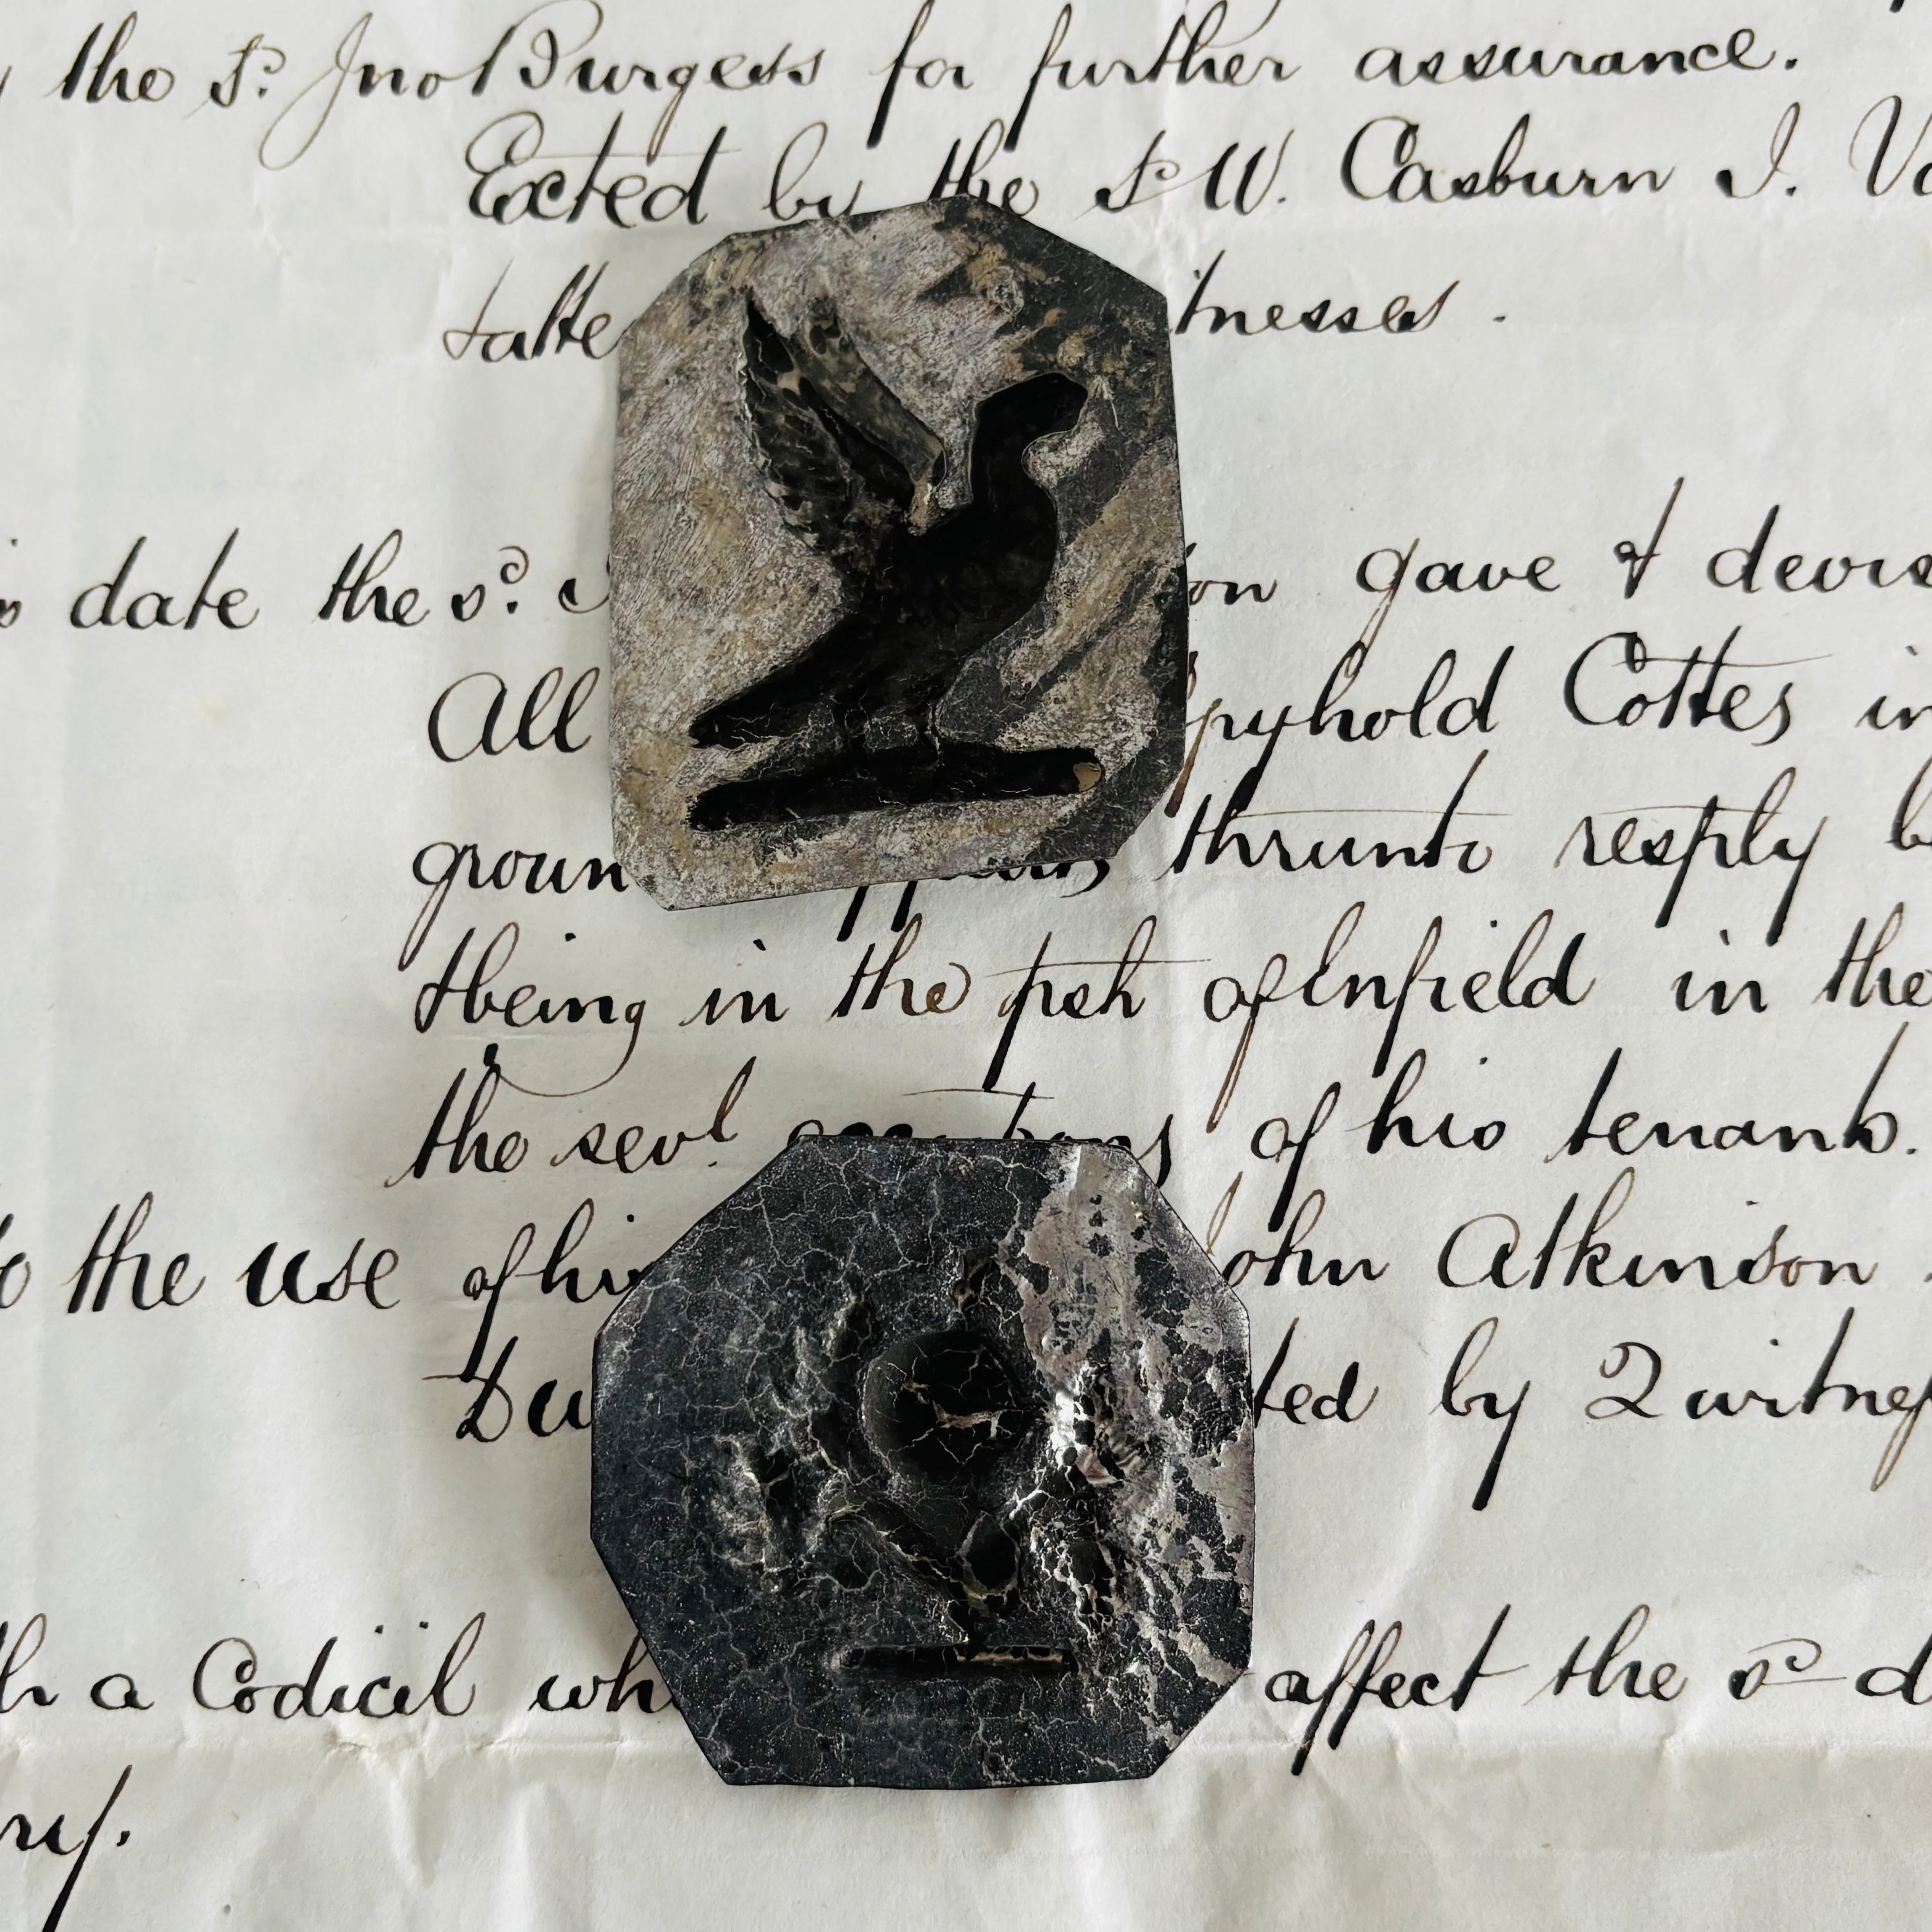 the sd. Jno Burgess for further assurance.
Exted by the sd W. Casburn J.
witnesses.
date the sd. gave & devis
All Copyhold Cottes in
groun thrunto resply be
& being in the psh of Enfield in the
the sevl. occupations of his tenants.
to the use of his John Atkinson.
Du ted by 2 witnes
a Codicil wh affect the sd d